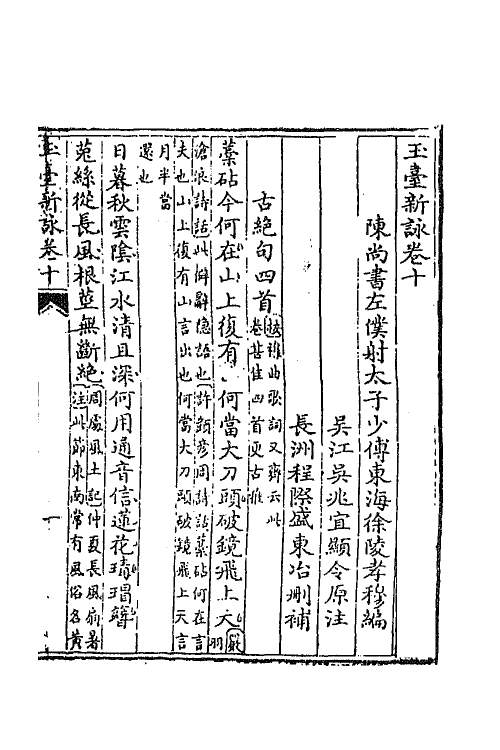 玉臺新詠卷十
陳尚書左僕射太子少傅東海徐陵孝穆編
吳江吳兆宜顯令原注
長洲程際盛東冶刪補
古絶句四首雜曲歌詞又齊云此卷昔佳四首更古雅
藁砧今何在山上復有何當大刀頭破鏡飛上天嚴羽
滄浪詩話此僻辭隱語也許顗彦周詩話藁砧何在言
夫也山上復有山言出也何當大刀頭破鏡飛上天言
月半當
還也
日暮秋雲陰江水清且深何用通音信蓮花瑇瑁簪
菟絲從長風根莖無斷絶周處風土記仲夏長風扇暑
注此節東南常有風俗名黄
玉臺新詠卷十
一